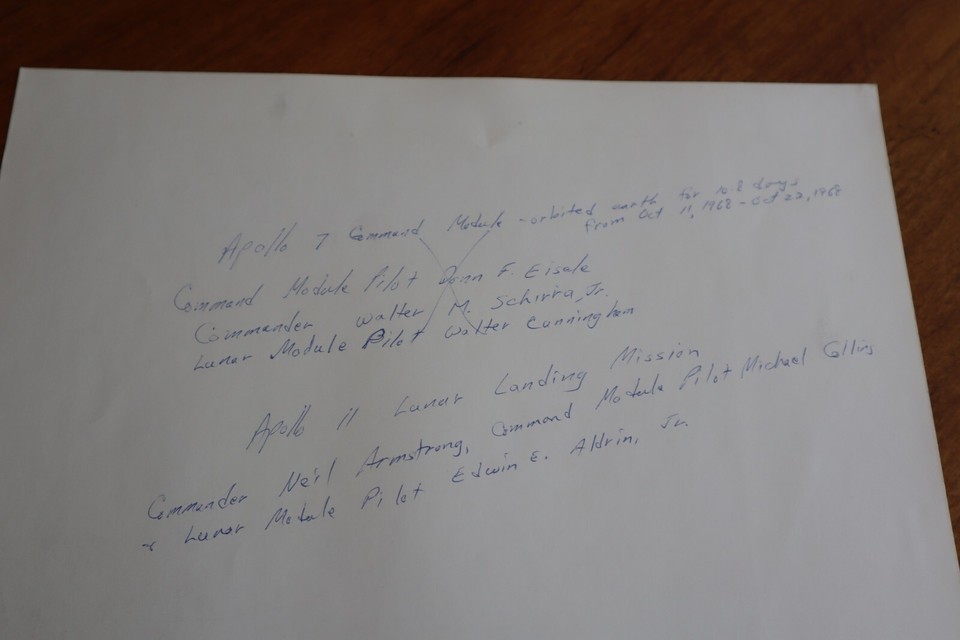 Apollo 7 Command Module - orbited earth for 10.8 days
from Oct 11, 1968 - Oct 22, 1968
Command Module Pilot Donn F. Eisele
Commander Walter M. Schirra, Jr.
Lunar Module Pilot Walter Cunningham
Apollo 11 Lunar Landing Mission
Commander Neil Armstrong, Command Module Pilot Michael Collins
& Lunar Module Pilot Edwin E. Aldrin, Jr.